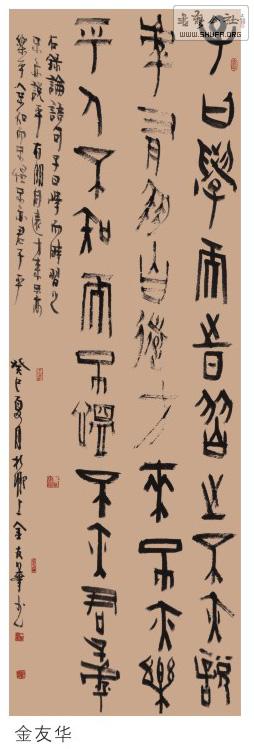 书艺公社
WWW.SHUFA.ORG
子曰學而時習之不亦說
乎有朋自遠方來不亦樂
乎人不知而不慍不亦君子乎
右錄論語句子曰學而時習之
不亦說乎有朋自遠方來不亦
樂乎人不知而不慍不亦君子乎
癸巳夏月於上金友華書
金友华